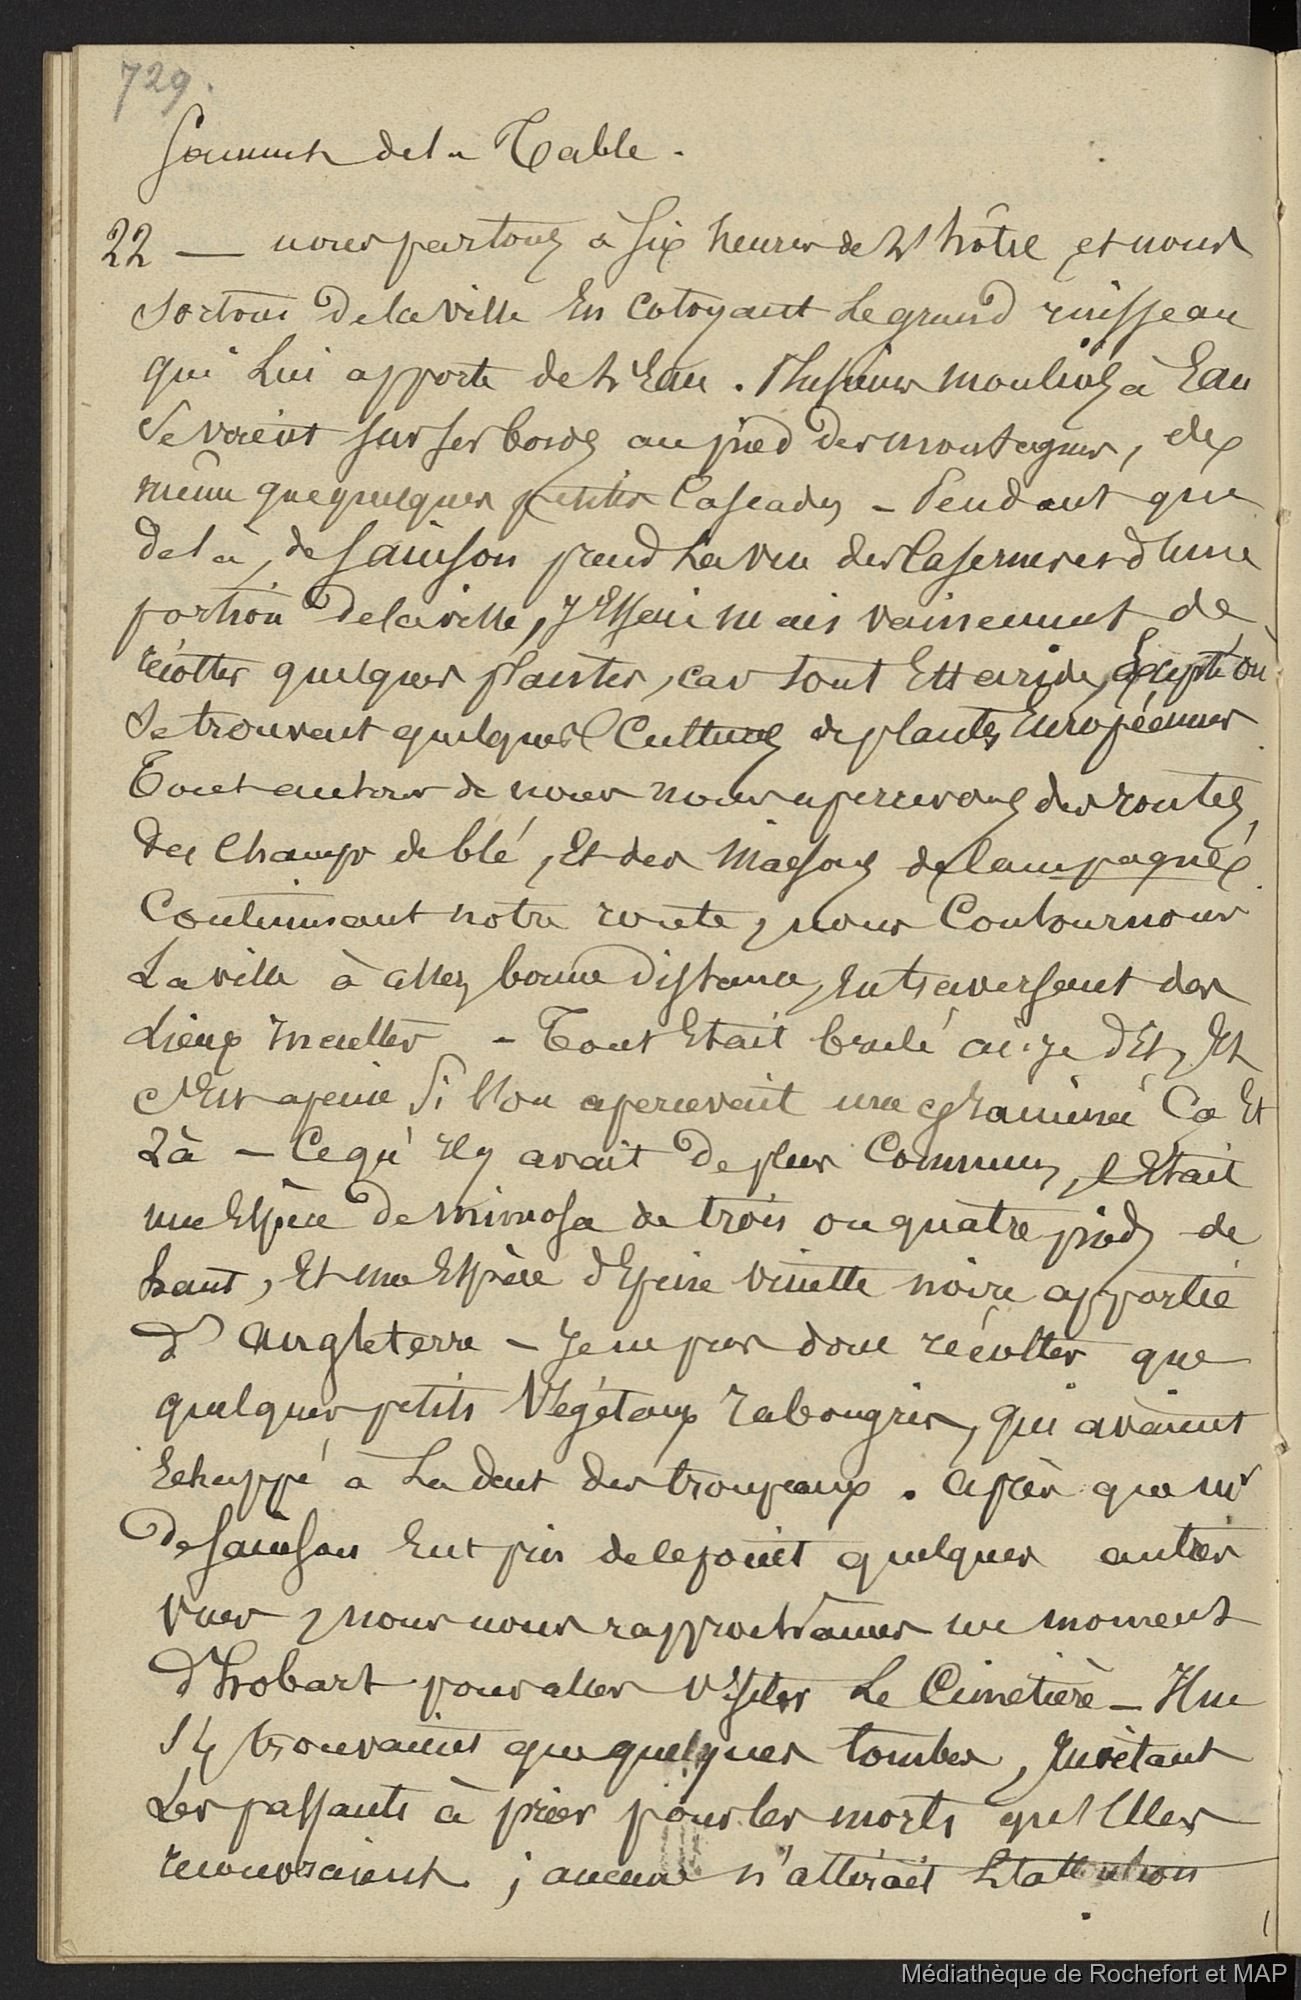 729.
Sommet de la Table.
22 — nous partons à six heures de l'hôtel et nous
sortons de la ville En Cotoyant Le grand ruisseau
qui Lui apporte de L'Eau. Plusieurs moulins à Eau
se voient sur ses bords au pied des montagnes, de
même que quelques petites Cascades - Pendant que
de là, de Sainson prend La vue des Casernes et d'une
portion de la ville, J'Essaie mais vainement de
récolter quelques plantes, car tout Est aride, Excepté où
se trouvent quelques Cultures de plantes Européennes
Tout autour de nous nous apercevons des routes,
des Champs de blé, Et des Maisons de Campagne.
Continuant notre route, nous Contournons
La ville à assez bonne distance, En traversant des
Lieux Incultes - Tout Etait brulé ai-je dit, Et
c'Est a peine si l'on apercevait une graminée Ca Et
Là - Ce qu'Il y avait de plus Commun, c'Etait
une Espèce de mimosa de trois ou quatre pieds de
haut, Et une Espèce d'Epine vinette noire apportée
d'angleterre - Je ne pus donc récolter que
quelques petits Végétaux rabougris, qui avaient
Echappé à La dent des troupeaux. après que Mr
de Sainson Eut pris de le point quelques autres
vues, nous nous rapprochames un moment
d'hobart pour aller visiter Le Cimetière - Il ne
s'y trouvaient que quelques tombes, Invitant
Les passants à prier pour les morts qu'Elles
recouvraient ; aucune n'attirait L'attention
Médiathèque de Rochefort et MAP